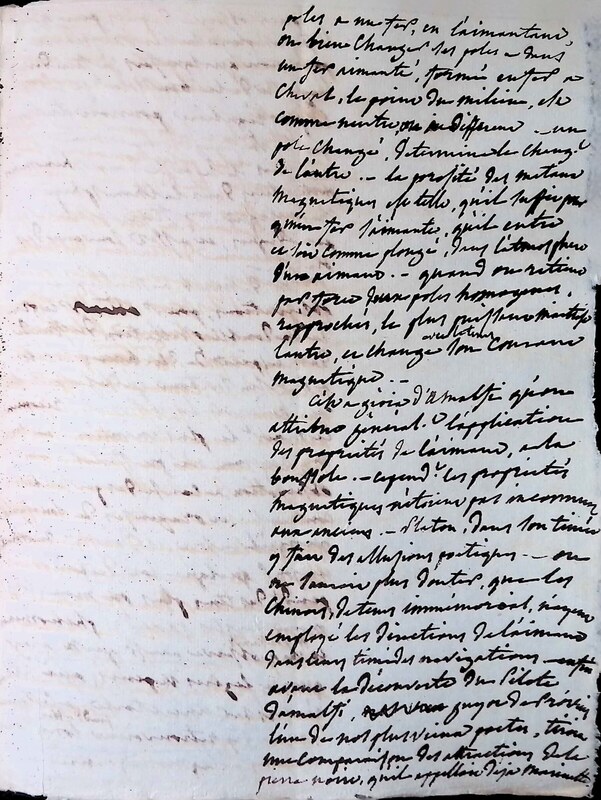 poles a un fer, en l'aimantant,
ou bien changer les poles - dans
un fer aimanté, formé en fer a
cheval, le point du milieu, est
comme neutre, ou indifferent - un
pole changé, determine le changt
de l'autre. - la porosité des metaux
magnetiques est telle, qu'il suffit pour
qu'un fer s'aimante, qu'il entre
et soit comme plongé, dans l'atmosphere
d'un aimant. - quand on retient
par force deux poles homogenes,
rapprochés, le plus puissant maitrise
l'autre, et change son courant
magnetique. -
C'est a gioia d'Amalfi qu'on
attribue général.t l'application
des proprietés de l'aimant, a la
boussole. - cepend.t les proprietés
magnetiques n'étoient pas inconnues
aux anciens. - Platon, dans son timée
y fait des allusions poetiques. - on
ne sauroit plus douter, que les
Chinois, de tems immémorial, n'ayent
employé les directions de l'aimant
dans leurs timides navigations - enfin
avant la découverte du Pilote
d'amalfi, guyot de Provins
l'un de nos plus vieux poetes, tiroit
une comparaison des attractions de la
pierre noire, qu'il appelloit deja